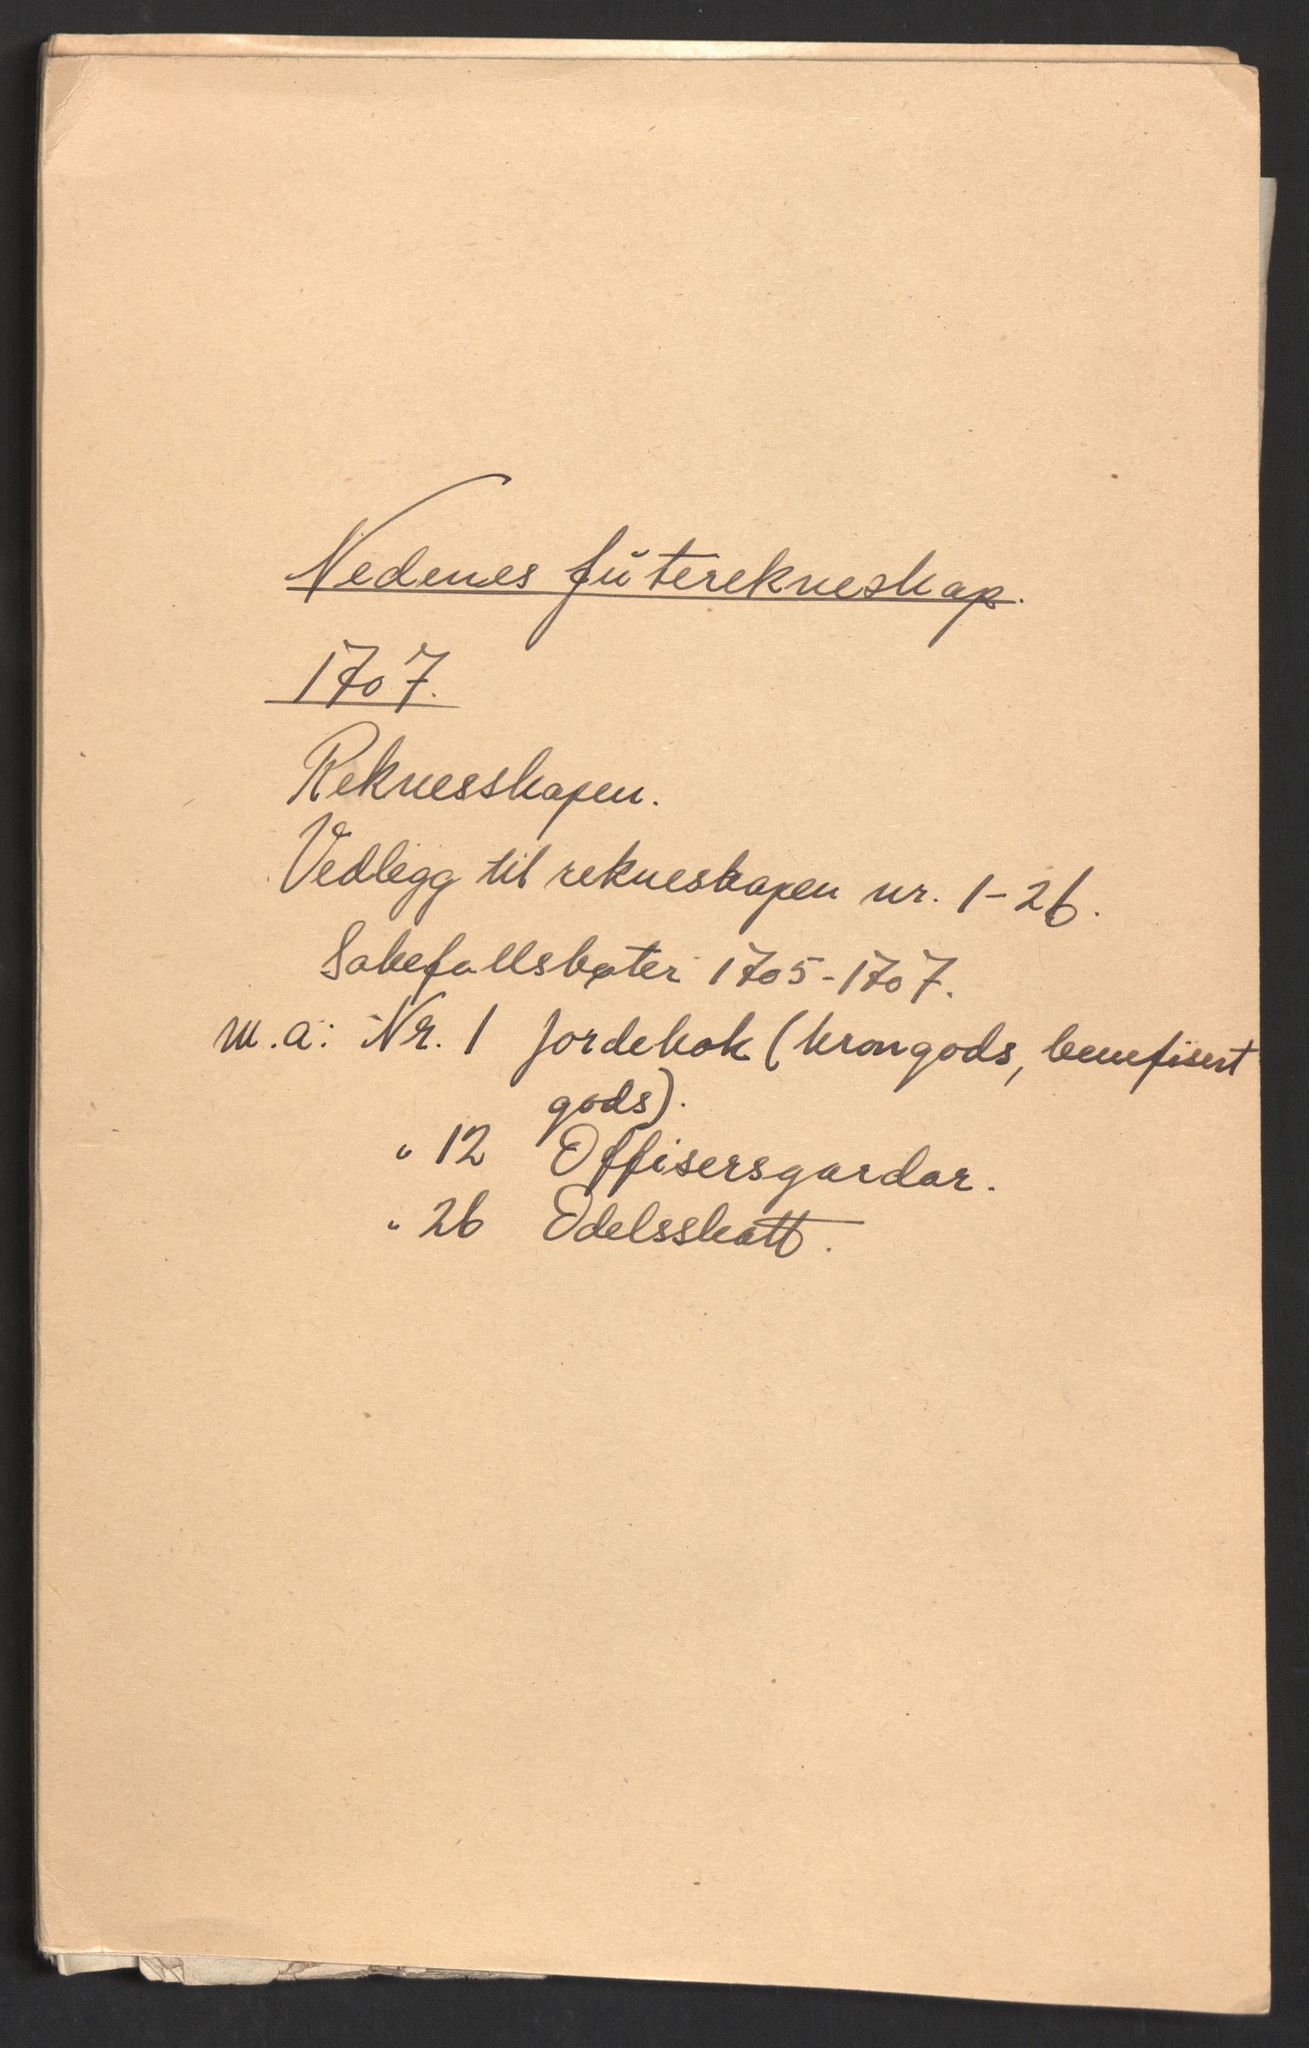 Nedenes futerekneskap.
1707.
Reknesskapen.
Vedlegg til rekneskapen nr. 1-26.
Sakefallsbøter 1705-1707.
m.a: Nr. 1 Jordebok (krongods, benefisert
gods).
" 12 Offisersgardar.
" 26 Odelsskatt.